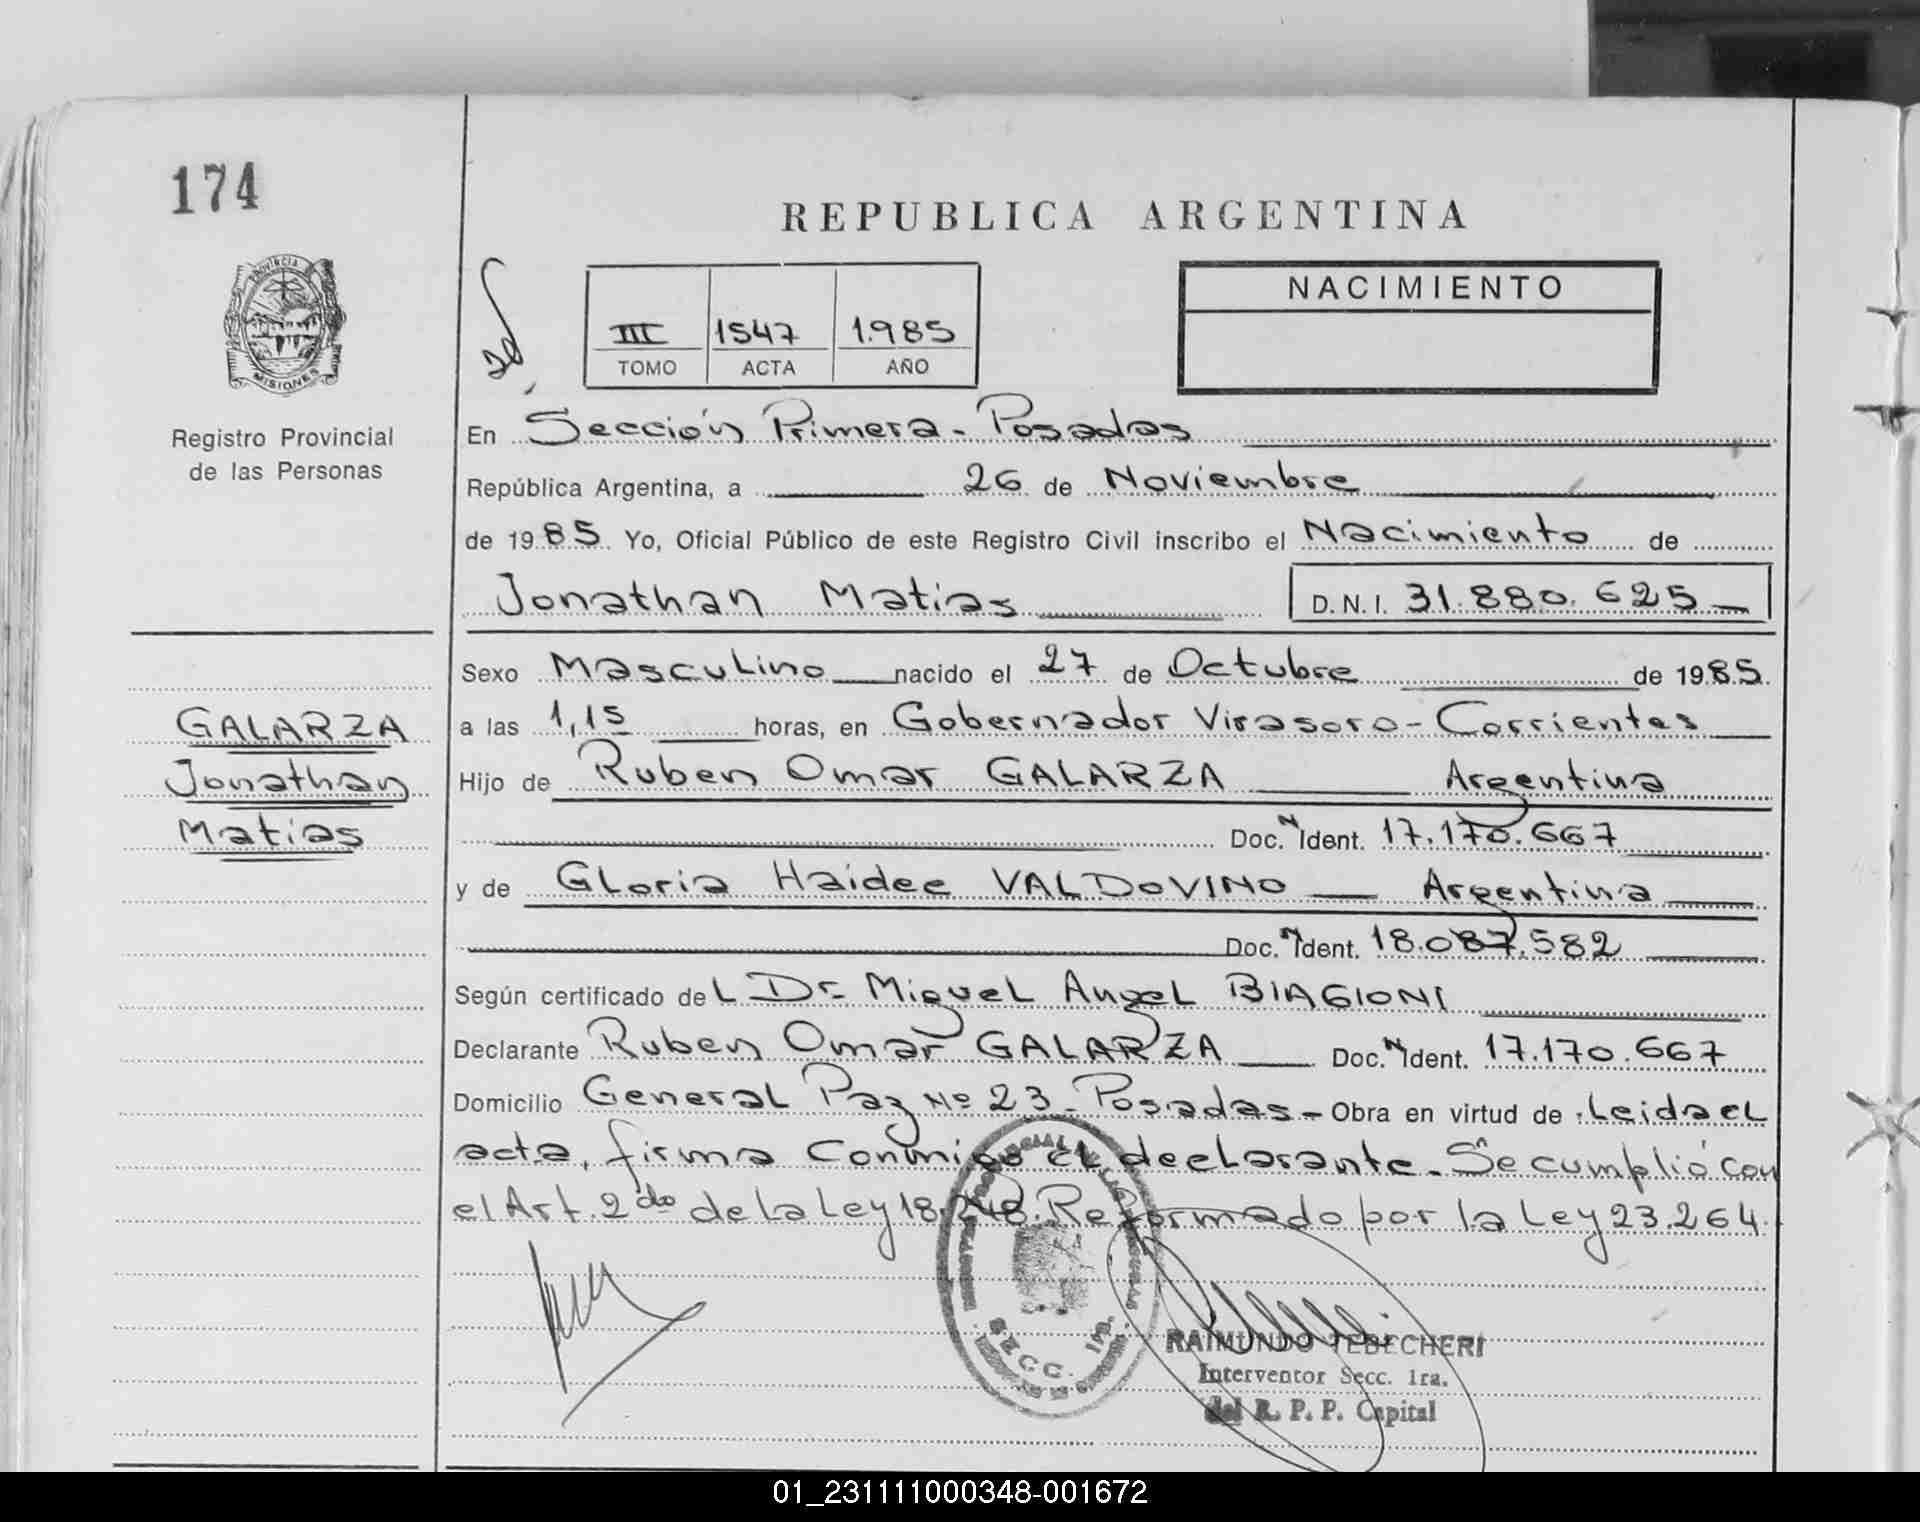 174
REPUBLICA ARGENTINA
PROVINCIA
MISIONES
Registro Provincial
de las Personas
III 1547 1.985
TOMO ACTA AÑO
NACIMIENTO
En Sección Primera - Posadas
República Argentina, a 26 de Noviembre
de 1985 Yo, Oficial Público de este Registro Civil inscribo el Nacimiento de
Jonathan Matias D.N.I. 31.880.625
Sexo Masculino nacido el 27 de Octubre de 1985.
GALARZA
Jonathan
Matias
a las 1,15 horas, en Gobernador Virasoro - Corrientes
Hijo de Ruben Omar GALARZA Argentina
Doc. N Ident. 17.170.667
y de Gloria Haidee VALDOVINO Argentina
Doc. N Ident. 18.087.582
Según certificado del Dr. Miguel Angel BIAGIONI
Declarante Ruben Omar GALARZA Doc. N Ident. 17.170.667
Domicilio General Paz Nº 23 - Posadas - Obra en virtud de Leida el
acta, firma conmigo el declarante. Se cumplió con
el Art. 2do de la Ley 18.248. Reformado por la Ley 23.264.
SECC. 1ra.
RAIMUNDO TEBECHERI
Interventor Secc. 1ra.
del R. P. P. Capital
01_231111000348-001672